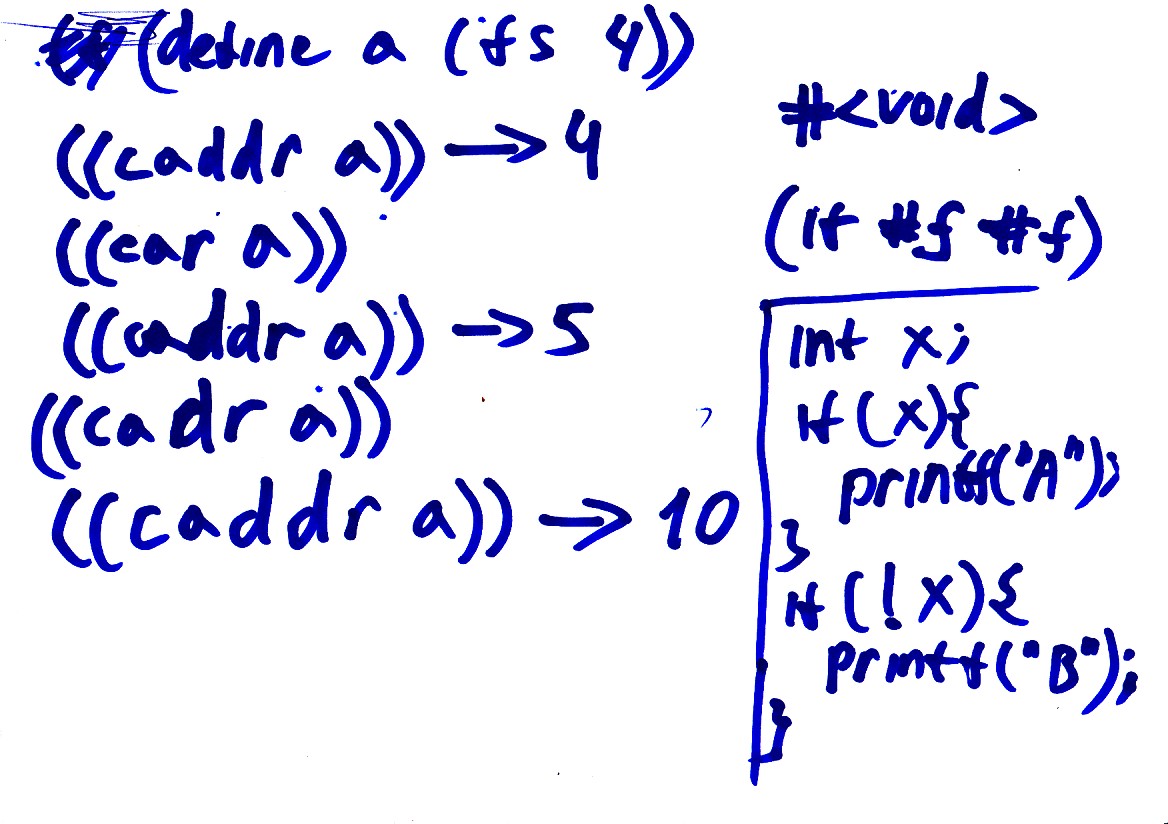 (define a (fs 4))
((caddr a)) → 4
((car a))
((caddr a)) → 5
((cadr a))
((caddr a)) → 10
#<void>
(if #f #f)
int x;
if (x){
printf("A");
}
if (!x){
printf("B");
}